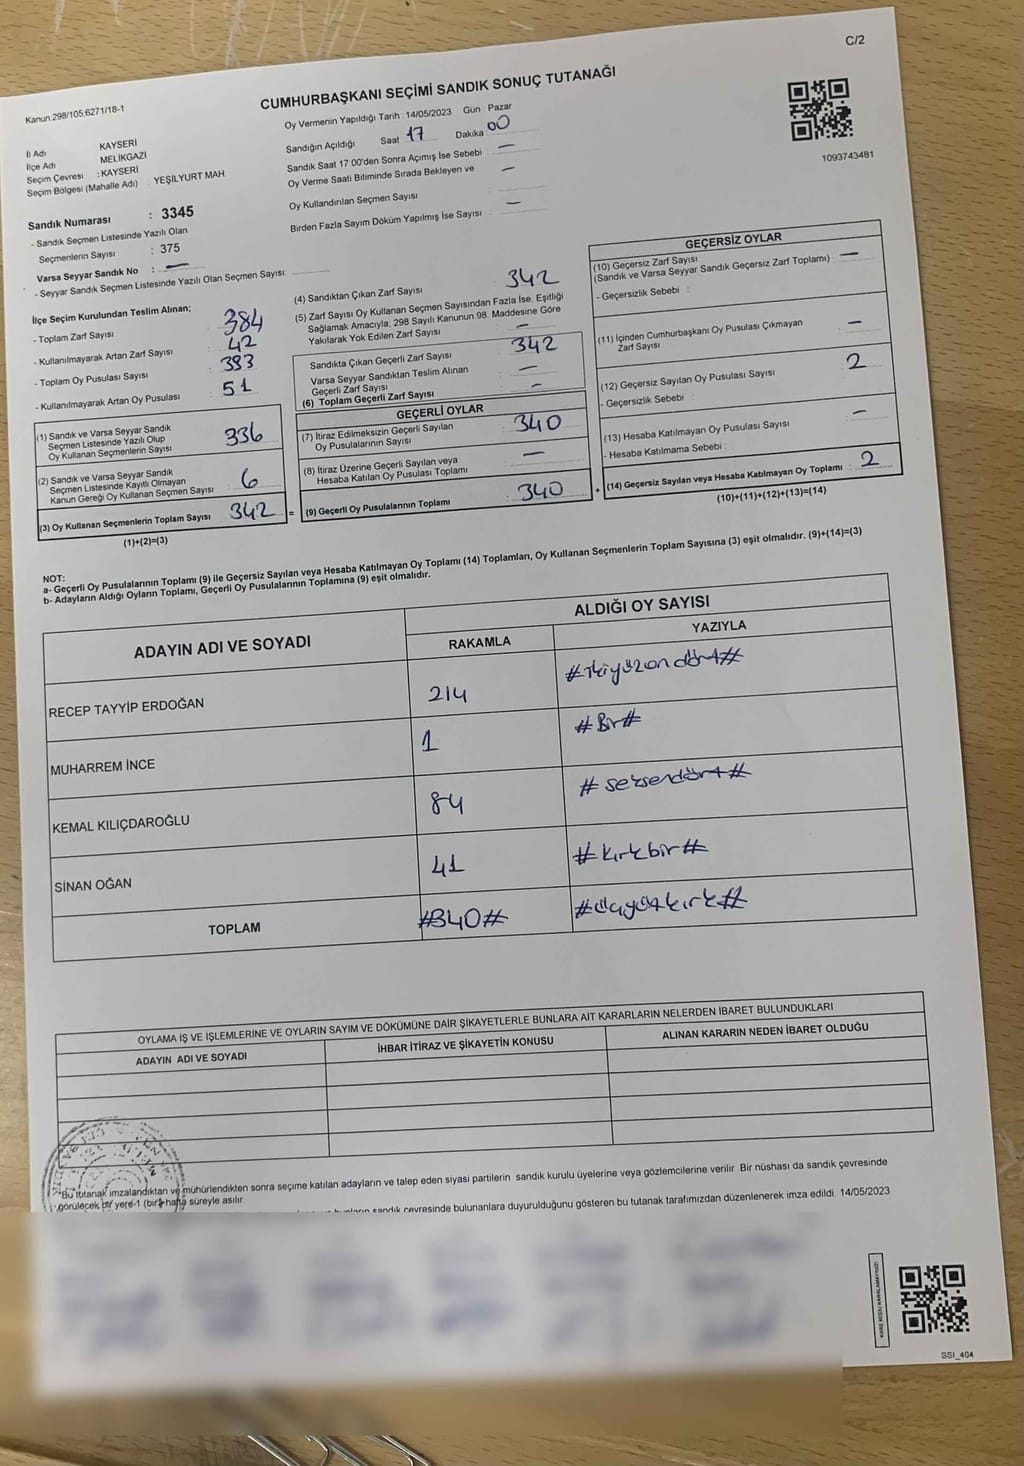 C/2
Kanun:298/105;6271/18-1
CUMHURBAŞKANI SEÇİMİ SANDIK SONUÇ TUTANAĞI
İl Adı KAYSERİ
İlçe Adı MELİKGAZİ
Seçim Çevresi : KAYSERİ
Seçim Bölgesi (Mahalle Adı) : YEŞİLYURT MAH
Sandık Numarası : 3345
- Sandık Seçmen Listesinde Yazılı Olan
Seçmenlerin Sayısı : 375
Varsa Seyyar Sandık No : —
- Seyyar Sandık Seçmen Listesinde Yazılı Olan Seçmen Sayısı:
Oy Vermenin Yapıldığı Tarih : 14/05/2023 Gün : Pazar
Sandığın Açıldığı Saat 17 Dakika 00
Sandık Saat 17:00'den Sonra Açımış İse Sebebi : —
Oy Verme Saati Bitiminde Sırada Bekleyen ve —
Oy Kullandırılan Seçmen Sayısı :
Birden Fazla Sayım Döküm Yapılmış İse Sayısı : —
1093743481
İlçe Seçim Kurulundan Teslim Alınan;
- Toplam Zarf Sayısı : 384
- Kullanılmayarak Artan Zarf Sayısı : 42
- Toplam Oy Pusulası Sayısı : 393
- Kullanılmayarak Artan Oy Pusulası : 51
(1) Sandık ve Varsa Seyyar Sandık
Seçmen Listesinde Yazılı Olup
Oy Kullanan Seçmenlerin Sayısı : 336
(2) Sandık ve Varsa Seyyar Sandık
Seçmen Listesinde Kayıtlı Olmayan
Kanun Gereği Oy Kullanan Seçmen Sayısı : 6
(3) Oy Kullanan Seçmenlerin Toplam Sayısı : 342
(1)+(2)=(3)
(4) Sandıktan Çıkan Zarf Sayısı : 342
(5) Zarf Sayısı Oy Kullanan Seçmen Sayısından Fazla İse, Eşitliği
Sağlamak Amacıyla; 298 Sayılı Kanunun 98. Maddesine Göre
Yakılarak Yok Edilen Zarf Sayısı : —
Sandıkta Çıkan Geçerli Zarf Sayısı : 342
Varsa Seyyar Sandıktan Teslim Alınan
Geçerli Zarf Sayısı : —
(6) Toplam Geçerli Zarf Sayısı : —
GEÇERLİ OYLAR
(7) İtiraz Edilmeksizin Geçerli Sayılan
Oy Pusulalarının Sayısı : 340
(8) İtiraz Üzerine Geçerli Sayılan veya
Hesaba Katılan Oy Pusulası Toplamı : —
(9) Geçerli Oy Pusulalarının Toplamı : 340
=
+
GEÇERSİZ OYLAR
(10) Geçersiz Zarf Sayısı
(Sandık ve Varsa Seyyar Sandık Geçersiz Zarf Toplamı) : —
- Geçersizlik Sebebi :
(11) İçinden Cumhurbaşkanı Oy Pusulası Çıkmayan
Zarf Sayısı : —
(12) Geçersiz Sayılan Oy Pusulası Sayısı : 2
- Geçersizlik Sebebi :
(13) Hesaba Katılmayan Oy Pusulası Sayısı : —
- Hesaba Katılmama Sebebi :
(14) Geçersiz Sayılan veya Hesaba Katılmayan Oy Toplamı : 2
(10)+(11)+(12)+(13)=(14)
NOT:
a- Geçerli Oy Pusulalarının Toplamı (9) ile Geçersiz Sayılan veya Hesaba Katılmayan Oy Toplamı (14) Toplamları, Oy Kullanan Seçmenlerin Toplam Sayısına (3) eşit olmalıdır. (9)+(14)=(3)
b- Adayların Aldığı Oyların Toplamı, Geçerli Oy Pusulalarının Toplamına (9) eşit olmalıdır.
ADAYIN ADI VE SOYADI ALDIĞI OY SAYISI
RAKAMLA YAZIYLA
RECEP TAYYİP ERDOĞAN 214 #İkiyüzondört#
MUHARREM İNCE 1 #Bir#
KEMAL KILIÇDAROĞLU 84 #seksendört#
SİNAN OĞAN 41 #kırkbir#
TOPLAM #340# #üçyüzkırk#
OYLAMA İŞ VE İŞLEMLERİNE VE OYLARIN SAYIM VE DÖKÜMÜNE DAİR ŞİKAYETLERLE BUNLARA AİT KARARLARIN NELERDEN İBARET BULUNDUKLARI
ADAYIN ADI VE SOYADI İHBAR İTİRAZ VE ŞİKAYETİN KONUSU ALINAN KARARIN NEDEN İBARET OLDUĞU
*Bu tutanak imzalandıktan ve mühürlendikten sonra seçime katılan adayların ve talep eden siyasi partilerin sandık kurulu üyelerine veya gözlemcilerine verilir. Bir nüshası da sandık çevresinde
görülecek bir yere 1 (bir) hafta süreyle asılır.
bunların sandık çevresinde bulunanlara duyurulduğunu gösteren bu tutanak tarafımızdan düzenlenerek imza edildi. 14/05/2023
KARE KODU KARALAMAYINIZ!
SSI_404